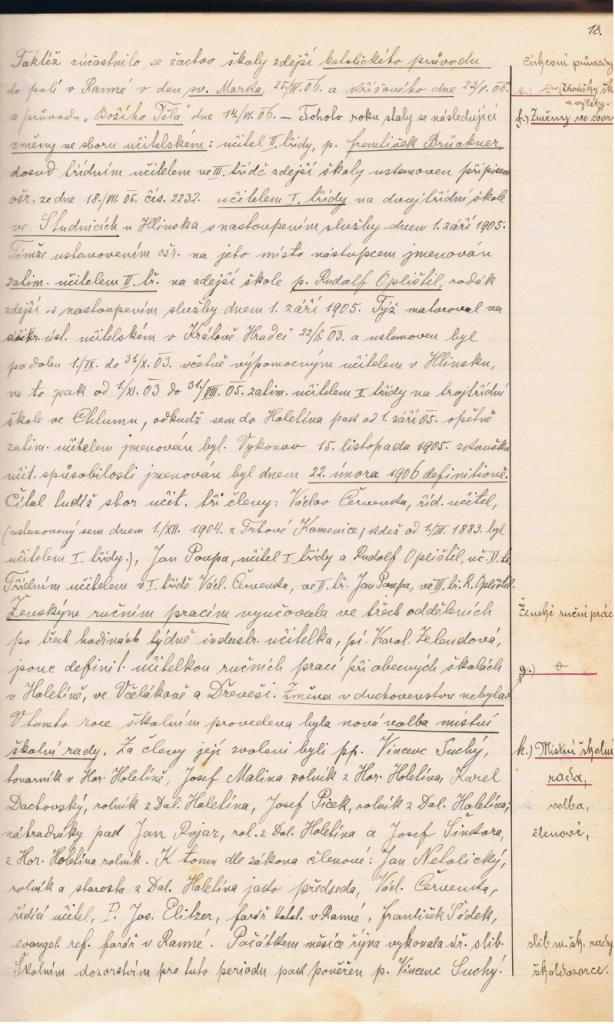 18.
Taktéž zúčastnilo se žactvo školy zdejší katolického průvodu
do polí v Ranné v den sv. Marka, 25/IV. 06. a křížového dne 06.
a průvodu „Božího Těla" dne 14/VI. 06. – Tohoto roku staly se následující
změny ve sboru učitelském: učitel II. třídy, p. František Brückner,
dosud třídním učitelem ve III. třídě zdejší školy ustanoven přípisem
ošr. ze dne 18./VII. 05. čís. 2232. učitelem I. třídy na dvojtřídní škole
ve Studnicích u Hlinska s nastoupením služby dnem 1. září 1905.
Týmže ustanovením ošr. na jeho místo nástupcem jmenován
zatím. učitelem II. tř. na zdejší škole p. Rudolf Oplištil, rodák
zdejší s nastoupením služby dnem 1. září 1905. Týž maturoval na
úst. učitelském v Králové Hradci 03. a ustanoven byl
po dobu 1./IX. do 31/X. 03. včetně výpomocným učitelem v Hlinsku,
na to pak od 1/XI. 03 do 31/VIII. 05. zatím. učitelem II. třídy na trojtřídní
škole ve Chlumu, odkudž sem do Holetína pak od 1. září 05. opětně
zatím. učitelem jmenován byl. Vykonav 15. listopadu 1905. zkoušku
učit. spůsobilosti jmenován byl dnem 22. února 1906 definitivně.
Čítal tudíž sbor učit. tři členy: Václav Červenka, říd. učitel,
(ustanovený sem dnem 1./XII. 1904. z Trhové Kamenice, kdež od 1883. byl
učitelem I. třídy.), Jan Poupa, učitel I. třídy a Rudolf Oplištil, uč. II. tř.
Třídním učitelem v I. třídě Václ. Červenka, ve II. tř. Jan Poupa, ve III. tř. R. Oplištil.
Ženským ručním pracím vyučovala ve třech odděleních
po třech hodinách týdně industr. učitelka, pí. Karol. Zelendová,
jsouc definit. učitelkou ručních prací při obecných školách
v Holetíně, ve Včelákově a Dřeveši. Změna v duchovenstvu nebyla.
V tomto roce školním provedena byla nová volba místní
školní rady. Za členy její zvoleni byli pp. Vincenc Suchý,
tovarník v Hor. Holetíně, Josef Malina rolník z Hor. Holetína, Karel
Dachovský, rolník z Dol. Holetína, Josef Piček, rolník z Dol. Holetína;
náhradníky pak Jan Rajar, rol. z Dol. Holetína a Josef Šinkora,
z Hor. Holetína rolník. K tomu dle zákona členové: Jan Netolický,
rolník a starosta z Dol. Holetína jako předseda, Václ. Červenka,
řídící učitel, P. Jos. Elitzer, farář katol. v Ranné, František Šádek,
evangel. ref. farář v Ranné. Počátkem měsíce října vykonala úř. slib.
Školním dozorstvím pro tuto periodu pak pověřen p. Vincenc Suchý.
Církevní průvody
e.) Zkoušky šk.
a výlety.
f.) Změny ve sboru
Ženské ruční práce
g.)
h.) Místní školní
rada,
volba,
členové,
slib m. šk. rady
škol. dozorce.